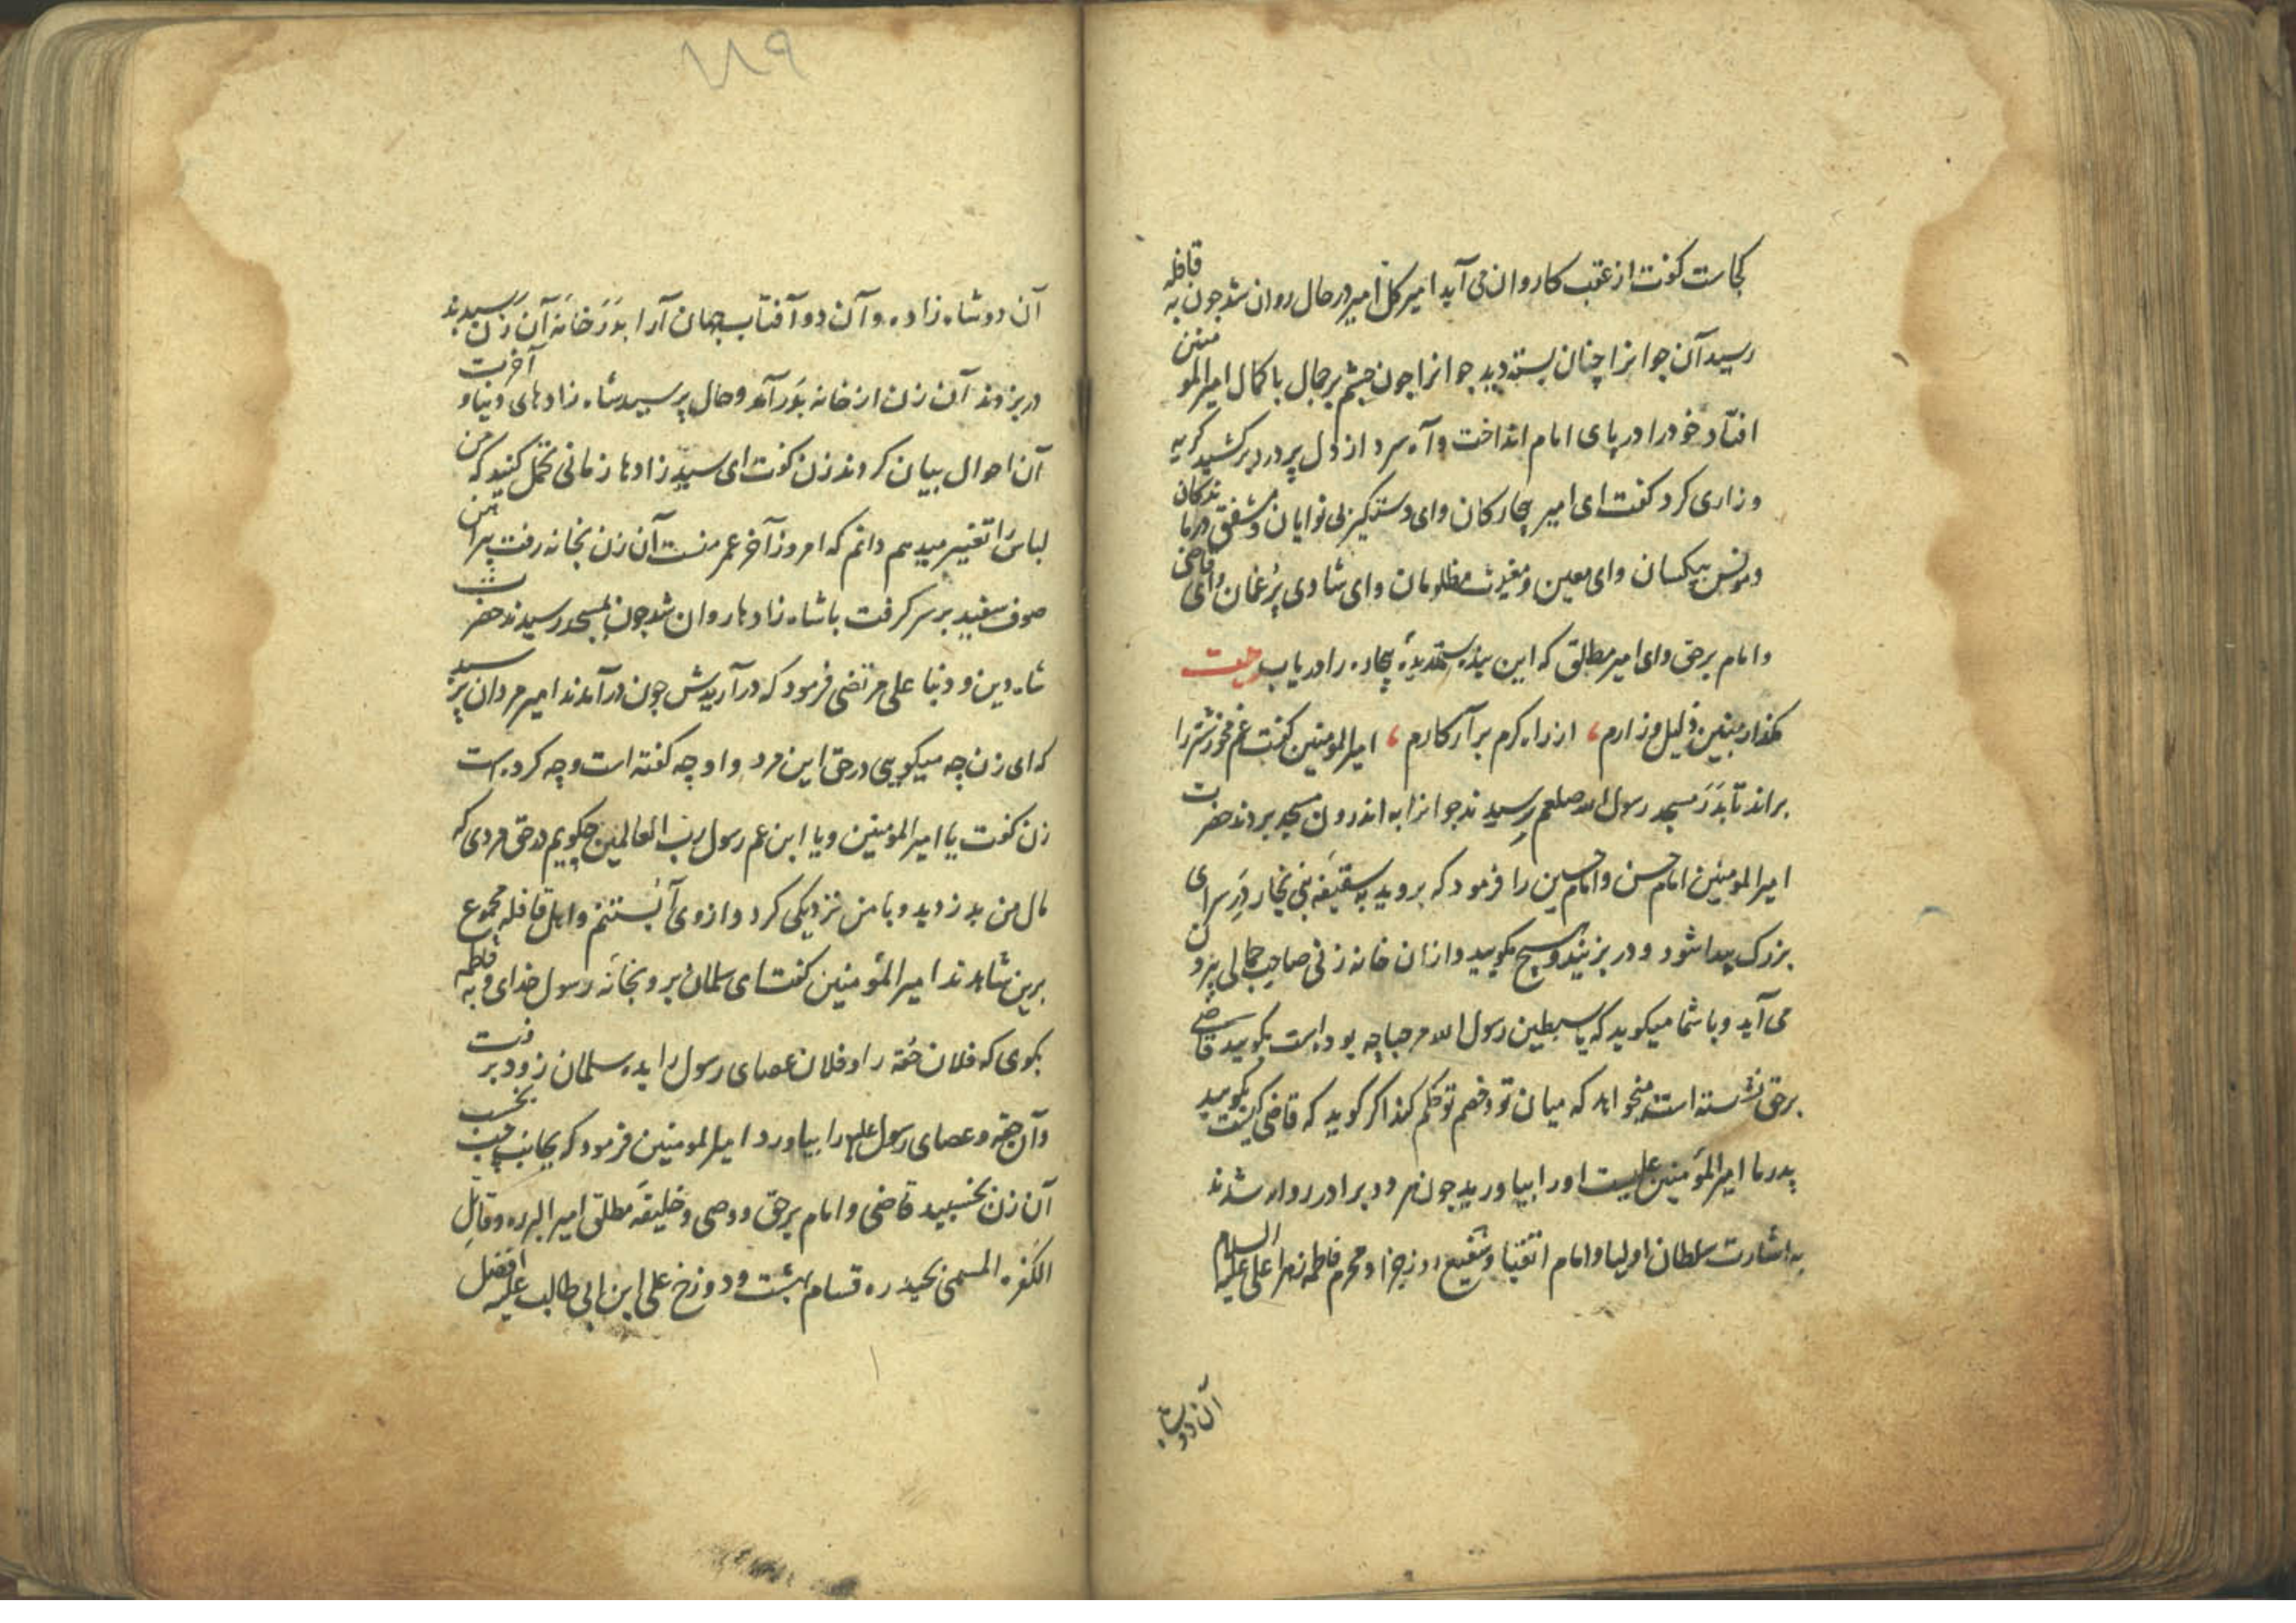 کجاست گفت از عقب کاروان می آید امیر کل امیر در حال روان شد چون به قافله
رسید آن جوانرا چنان بسته دید جوانرا چون چشم بر جمال با کمال امیر المومنین
افتاد خود را در پای امام انداخت و آه سرد از دل پر درد برکشید گریه
و زاری کرد گفت ای امیر بیچارکان و ای دستگیر بی نوایان و مشفق درماندکان
و مونس بیکسان و ای معین و مغیث مظلومان و ای شادی پر غمان و ای قاضی
و امام برحق و ای امیر مطلق که این بنده ستمدیدهٔ بیچاره را دریاب بیت
مگذار چنین ذلیل و زارم ، از راه کرم برآر کارم ، امیر المومنین گفت غم مخور شتر را
براند تا بدَرَ مسجد رسول الله صلعم رسیدند جوانرا به اندرون مسجد بردند حضرت
امیر المومنین امام حسن و امام حسین را فرمود که بروید به سقیفه بنی نجار دَرِ سرای
بزرک پیدا شود و در بزنید و هیچ مگویید و از ان خانه زنی صاحب جمالی بیرون
می آید و با شما میگوید که یا سبطین رسول الله مرحبا چه بوده است بگویید قاضی
برحق نشسته است میخواهد که میان تو و خصم تو حکم کند اگر گوید که قاضی کیست بگویید
پدر ما امیر المؤمنین علیست او را بیاورید چون هر دو برادر روان شدند
به اشارت سلطان اولیا و امام اتقیا و شفیع روز جزا و محرم فاطمه زهرا علی علیه السلام
آن دو شاه
۱۱۹
آن دو شاه زاده و آن دو آفتاب جهان آرا بدَرَ خانهٔ آن زن رسیدند
در بزدند آن زن از خانه بدَر آمد و حال پرسید شاه زادهای دنیا و آخرت
آن احوال بیان کردند زن گفت ای سید زادها زمانی تحمل کنید که من
لباس را تغییر میدهم دانم که امروز آخر عمر منست آن زن بخانه رفت پیراهن
صوف سفید بر سر گرفت با شاه زادها روان شد چون بمسجد رسیدند حضرت
شاه دین و دنیا علی مرتضی فرمود که در آریدش چون در آمدند امیر مردان پرسید
که ای زن چه میگویی در حق این مرد و او چه گفته است و چه کرده است
زن گفت یا امیر المومنین و یا ابن عم رسول رب العالمین چگویم در حق مردی که
مال من بدزدید و با من نزدیکی کرد و از وی آبستنم و اهل قافله مجموع
برین شاهدند امیر المؤمنین گفت ای سلمان برو بخانهٔ رسول خدای و به فاطمه
بگوی که فلان حقه را و فلان عصای رسول را بده سلمان زود برفت
و آن حقه و عصای رسول علیه را بیاورد امیر المومنین فرمود که بجانب چپ بخسب
آن زن بخسبید قاضی و امام برحق و وصی و خلیفهٔ مطلق امیر البرره و قاتل
الکفره المسمی بحیدره قسام بهشت و دوزخ علی ابن ابی طالب علیه افضل